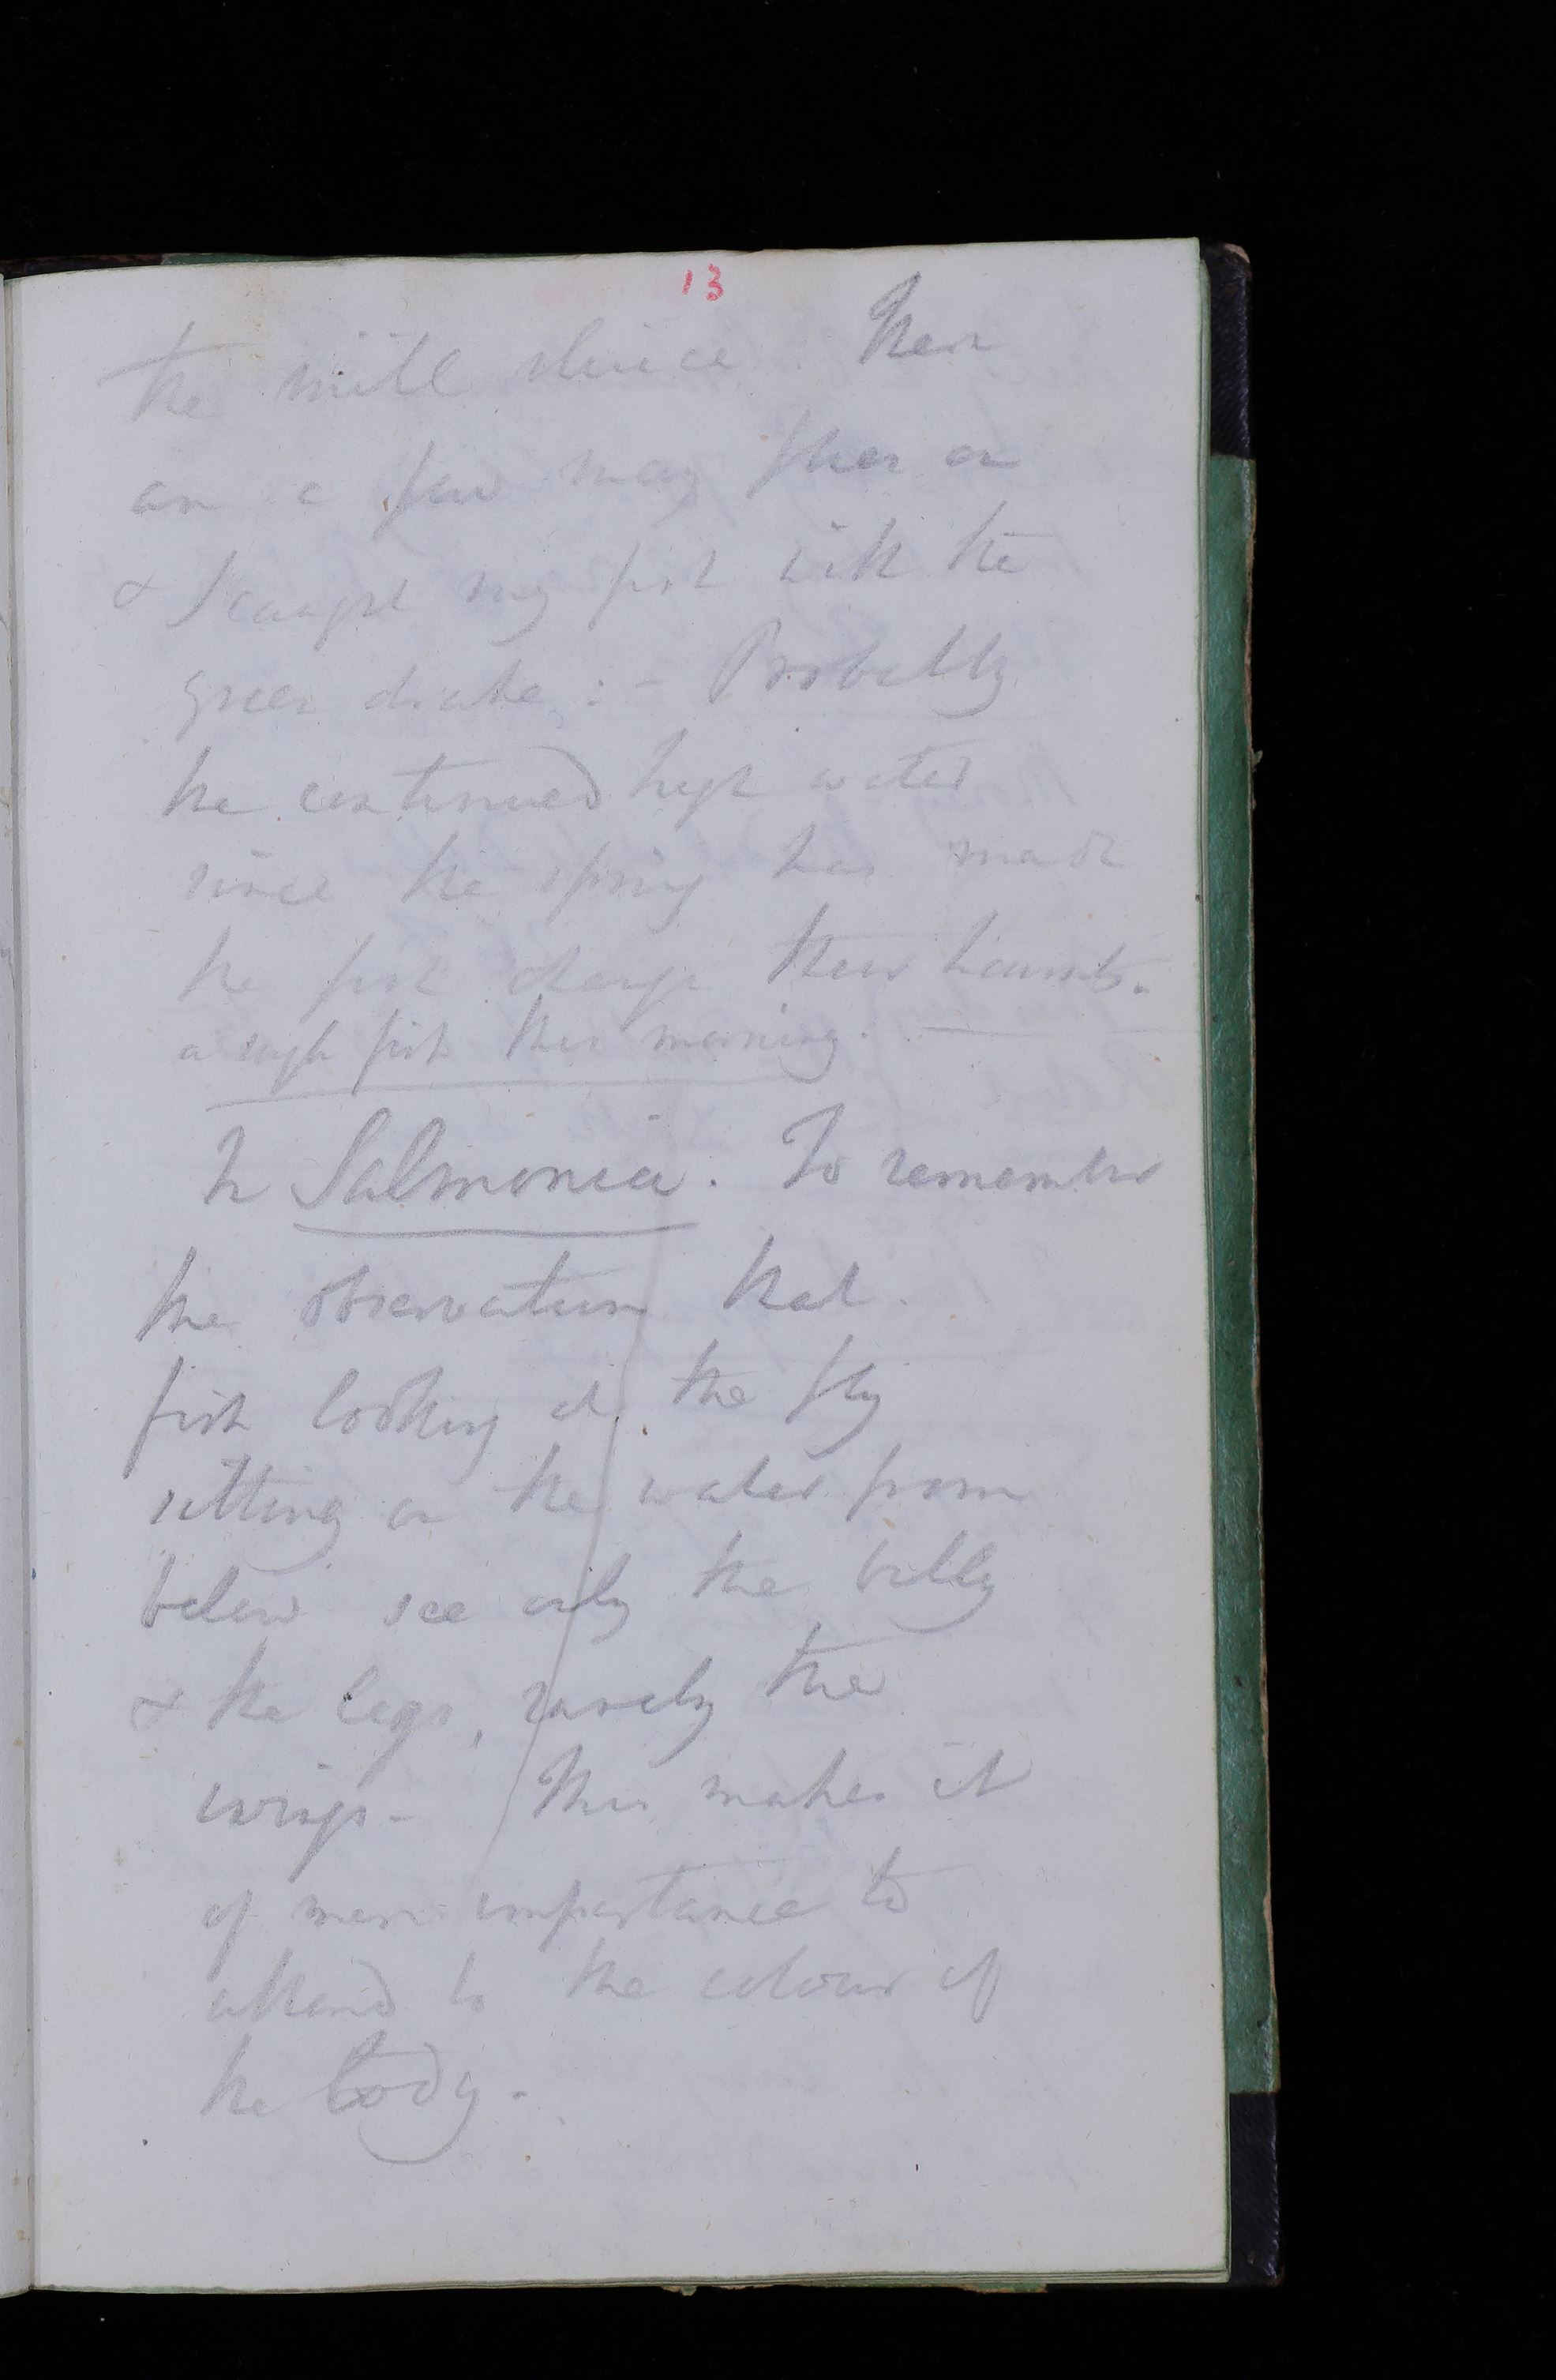 13
the mill sluice. There
are a few may flies on
& I caught my fish with the
green drake: - Probably
the continued high water
since the spring has made
the fish change their haunts.
a single fish this morning.
In Salmonia. To remember
the observation that
fish looking at the fly
sitting on the water from
below see only the belly
& the legs, rarely the
wings - This makes it
of more importance to
attend to the colour of
the body.